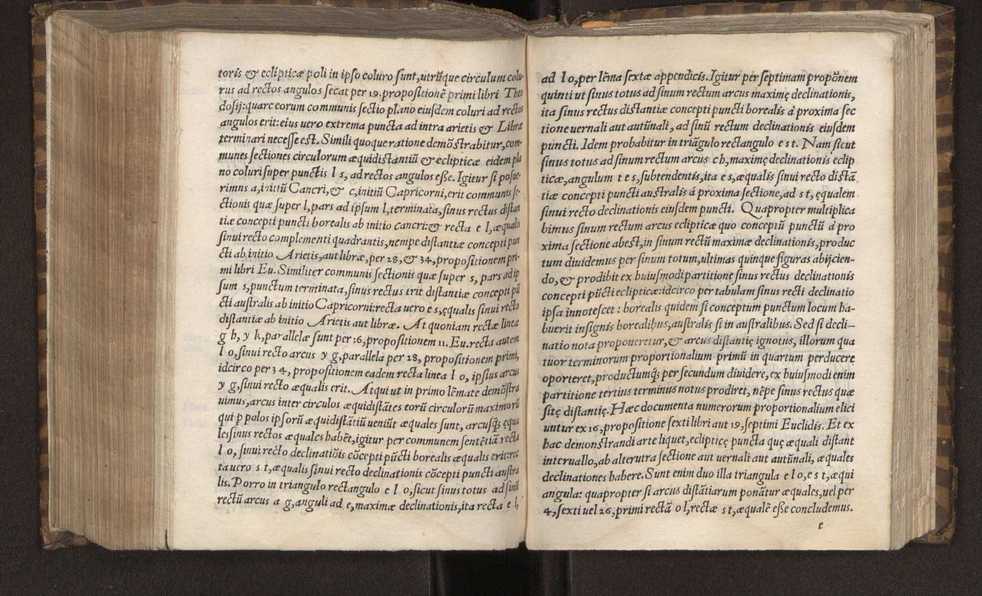 toris & eclipticæ poli in ipso coluro sunt, utrũque circulum colu-
rus ad rectos angulos secat per 19. propositionẽ primi libri Theo
dosij: quare eorum communis sectio plano eiusdem coluri ad rectos
angulos erit: eius uero extrema puncta ad intra arietis & Libræ
terminari necesse est. Simili quoque ratione demõstrabitur, com-
munes sectiones circulorum æquidistantiũ & eclipticæ eidem pla
no coluri super punctis l s, ad rectos angulos esse. Igitur si posue-
rimus a, initiũ Cancri, & c, initiũ Capricorni, erit communis se-
ctionis quæ super l, pars ad ipsum l, terminata, sinus rectus distan
tiæ concepti puncti borealis ab initio cancri: & recta e l, æqualis
sinui recto complementi quadrantis, nempe distantiæ concepti pun
cti ab initio Arietis, aut libræ, per 28, & 34, propositionem pri-
mi libri Eu. Similiter communis sectionis quæ super s, pars ad ip
sum s, punctum terminata, sinus rectus erit distantiæ concepti pũ
cti australis ab initio Capricorni: recta uero e s, ęqualis sinui recto
distantiæ ab initio Arietis aut libræ. At quoniam rectæ lineæ
g h, y k, parallelæ sunt per 16, propositionem 11. Eu. recta autem
l o, sinui recto arcus y g, parallela per 28, propositionem primi,
idcirco per 34, propositionem eadem recta linea l o, ipsius arcus
y g, sinui recto æqualis erit. Atqui ut in primo lẽmate demõstra
uimus, arcus inter circulos æquidistãtes torũ circulorũ maximorũ
qui p polos ipsorũ æquidistãtiũ ueniũt æquales sunt, arcusq́; equa
les sinus rectos æquales habẽt, igitur per communem sentẽtiã recta
l o, sinui recto declinatiõis cõcepti pũcti borealis æqualis erit: rec
ta uero s t, æqualis sinui recto declinationis cõcepti puncti austra
lis. Porro in triangulo rectangulo e l o, sicut sinus totus ad sinũ
rectũ arcus a g, anguli ad e, maximæ declinationis, ita recta e l,
ad l o, per lẽma sextæ appendicis. Igitur per septimam propõnem
quinti ut sinus totus ad sinum rectum arcus maximę declinationis,
ita sinus rectus distantiæ concepti puncti borealis á proxima sec
tione uernali aut autũnali, ad sinũ rectum declinationis eiusdem
puncti. Idem probabitur in triãgulo rectangulo e s t. Nam sicut
sinus totus ad sinum rectum arcus c h, maximę declinationis eclip
ticæ, angulum t e s, subtendentis, ita e s, æqualis sinui recto distã
tiæ concepti puncti australis á proxima sectione, ad s t, equalem
sinui recto declinationis eiusdem puncti. Quapropter multiplica
bimus sinum rectum arcus eclipticæ quo conceptũ punctũ á pro
xima sectione abest, in sinum rectũ maximæ declinationis, produc
tum diuidemus per sinum totum, ultimas quinque figuras abijcien-
do, & prodibit ex huiusmodi partitione sinus rectus declinationis
concepti pũcti eclipticæ: idcirco per tabulam sinus recti declinatio
ipsa innotescet: borealis quidem si conceptum punctum locum ha-
buerit in signis borealibus, australis si in australibus. Sed si decli-
natio nota proponeretur, & arcus distantię ignotus, illorum qua
tuor terminorum proportionalium primũ in quartum perducere
oporteret, productumq́; per secundum diuidere, ex huiusmodi enim
partitione tertius terminus notus prodiret, nẽpe sinus rectus quæ
sitę distantię. Hæc documenta numerorum proportionalium elici
untur ex 16, propositione sexti libri aut 19, septimi Euclidis. Et ex
hac demonstrandi arte liquet, eclipticę puncta quę æquali distant
interuallo, ab alterutra sectione aut uernali aut autũnali, æquales
declinationes habere. Sunt enim duo illa triangula e l o, e s t, æqui
angula: quapropter si arcus distãtiarum ponãtur æquales, uel per
4, sexti uel 26, primi rectã o l, rectæ s t, æqualẽ esse concludemus.
e